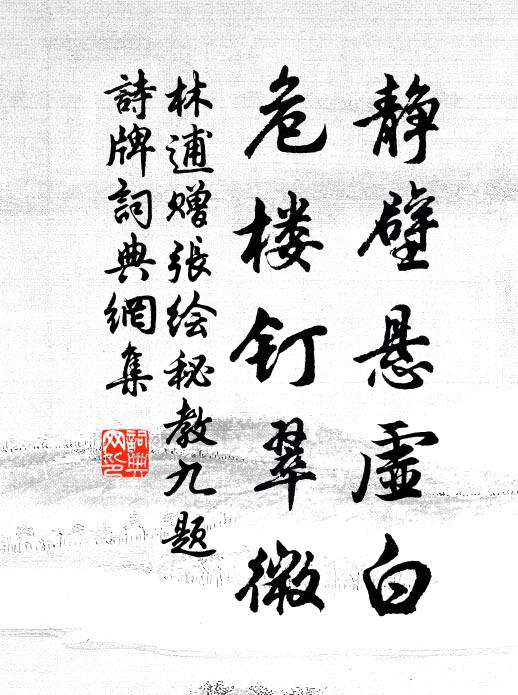 静壁悬虚白
危楼钉翠微
林逋赠張绘秘教九题
詩牌詞典網集
詞典
网印